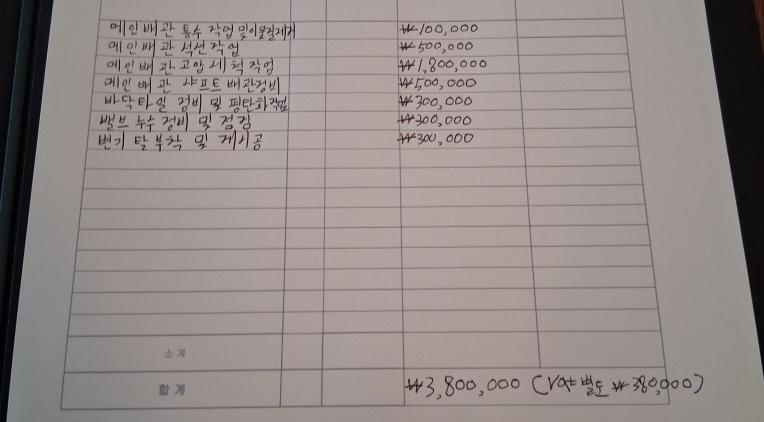 메인배관 통수 작업 및 이물질제거 ₩100,000
메인배관 석션작업 ₩500,000
메인배관 고압세척작업 ₩1,800,000
메인배관 샤프트 배관정비 ₩500,000
바닥타일 정비 및 평탄화작업 ₩300,000
밸브 누수 정비 및 점검 ₩300,000
변기 탈부착 및 재시공 ₩300,000
소계
합계 ₩3,800,000 (vat별도 ₩380,000)